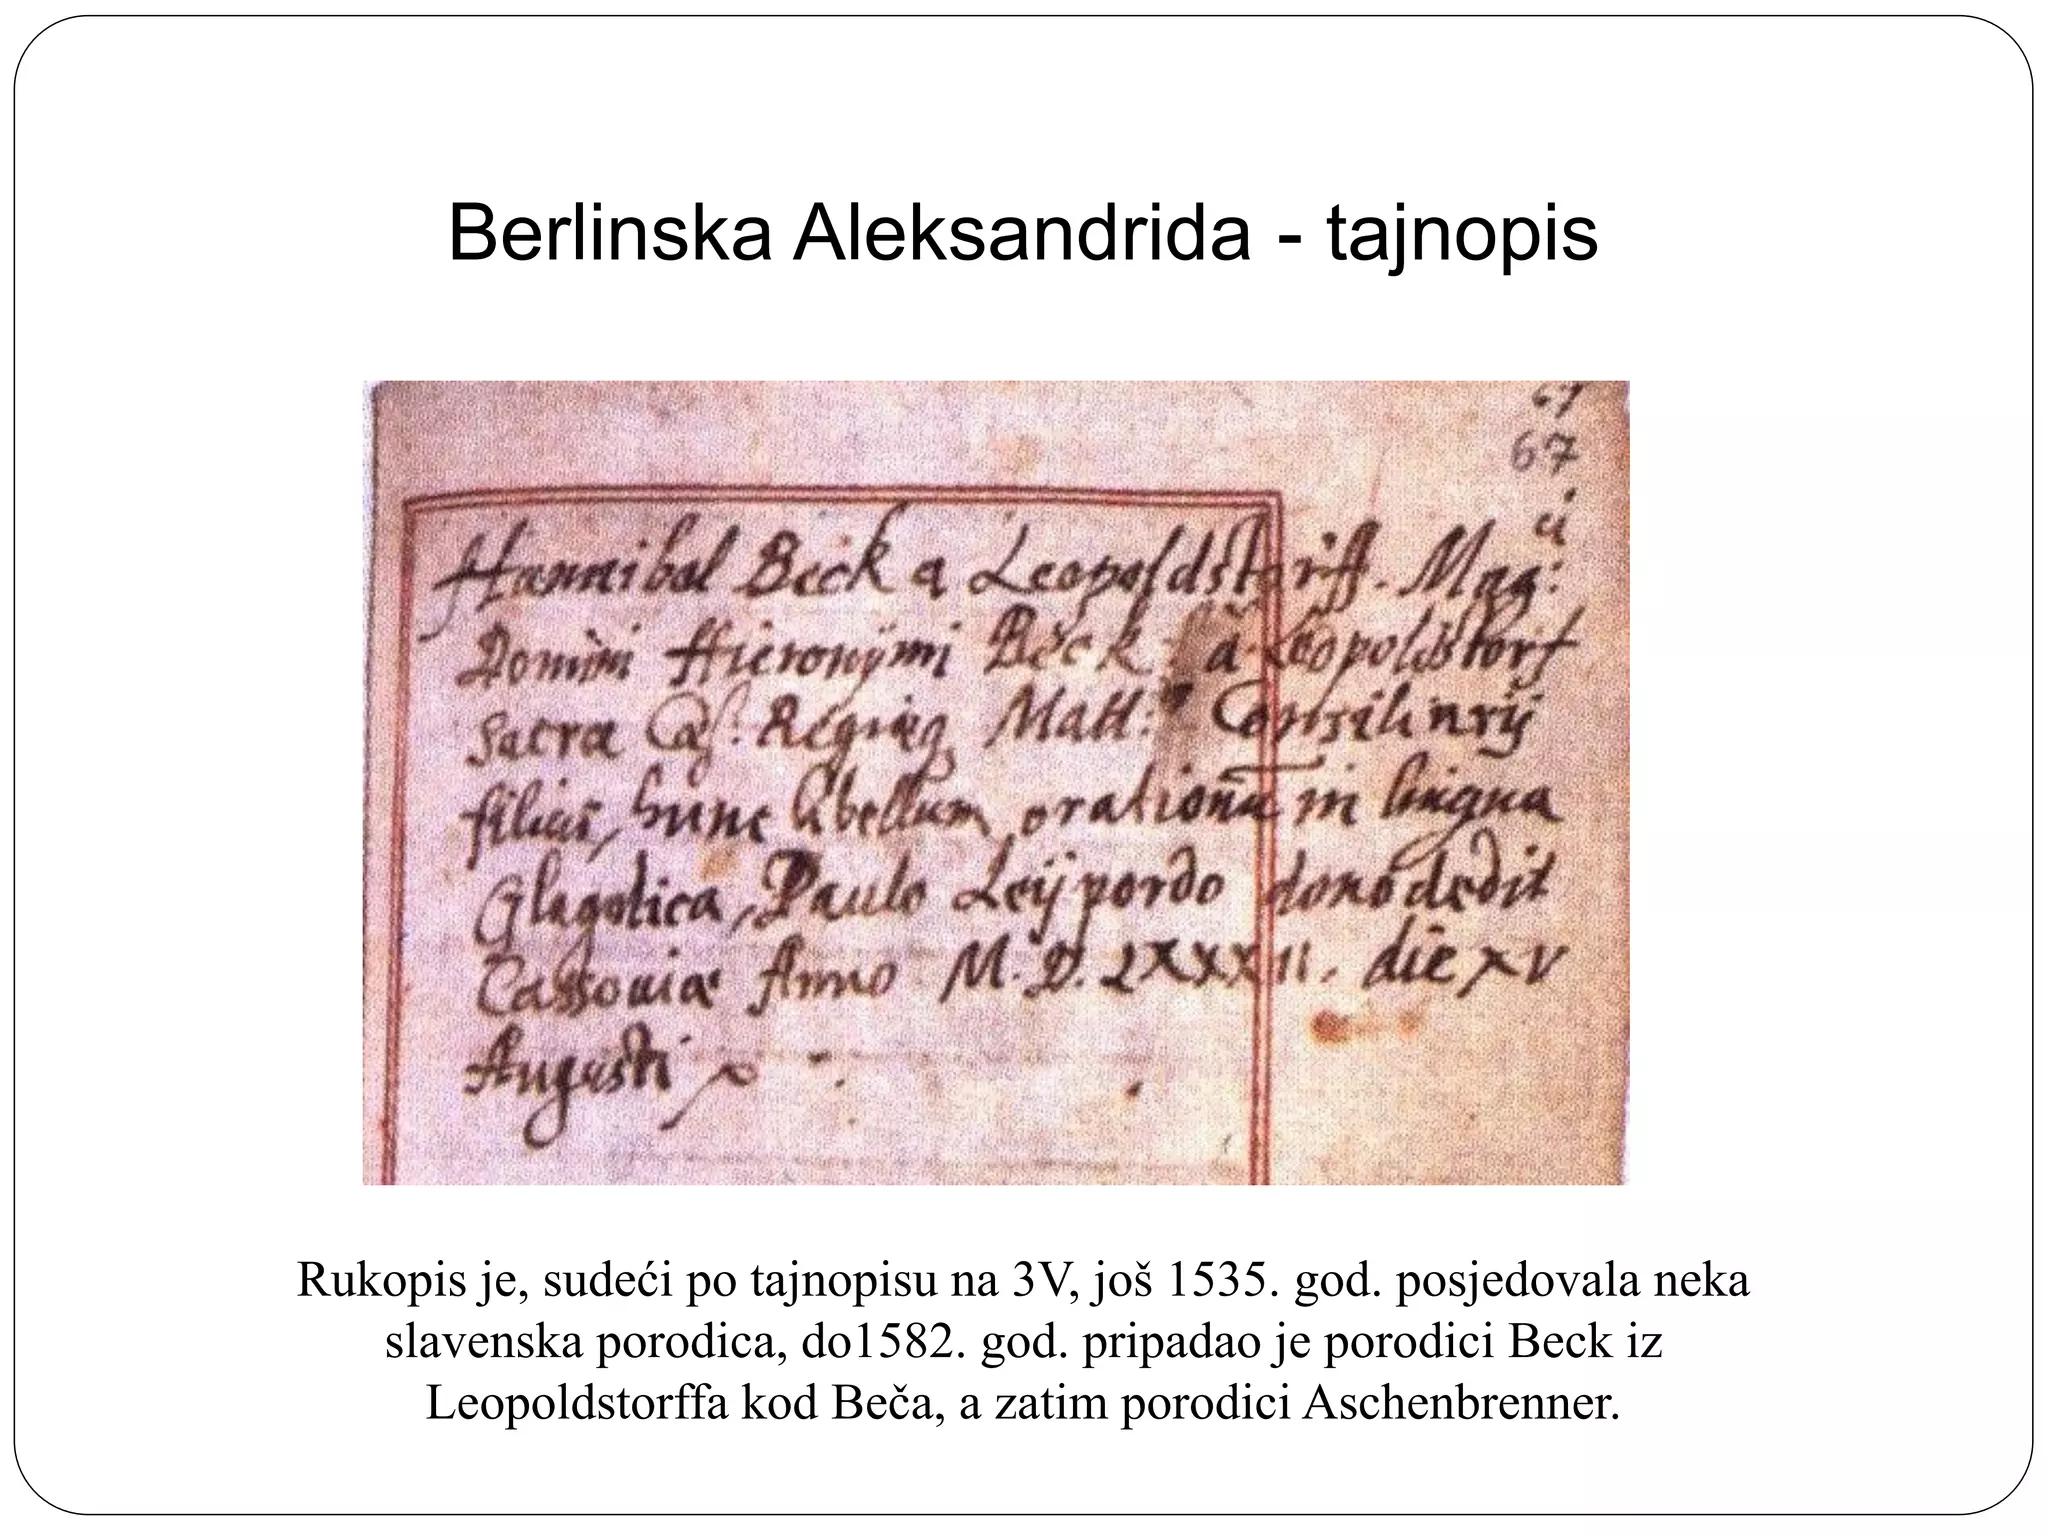 Berlinska Aleksandrida - tajnopis
67
67
Hannibal Beck a Leopoldstorff. Mag:
Domini Hieronÿmi Beck a Leopoldstorf
sacra Cæs. Regiæq Matt: Consiliarij
filius, hunc libellum orationū in lingua
Glagolica, Paulo Leÿpordo dono dedit
Cassoviæ Anno M.D.LXXXII. die XV
Augusti
Rukopis je, sudeći po tajnopisu na 3V, još 1535. god. posjedovala neka
slavenska porodica, do1582. god. pripadao je porodici Beck iz
Leopoldstorffa kod Beča, a zatim porodici Aschenbrenner.